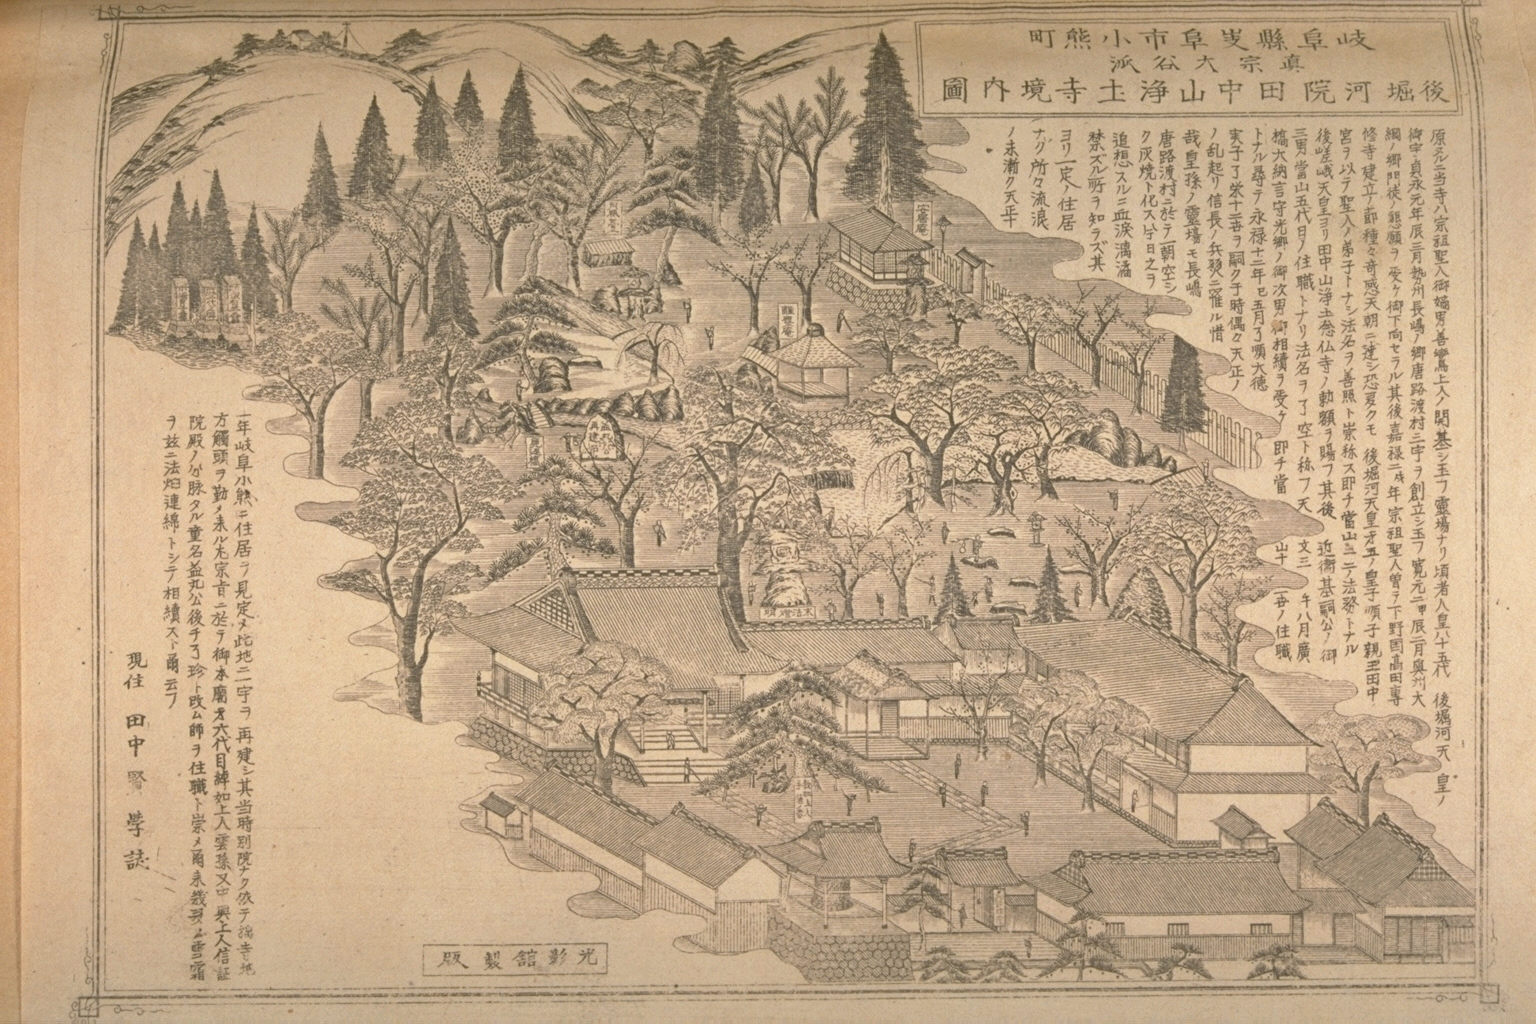 岐阜縣岐阜市小熊町
真宗大谷派
後堀河院田中山浄土寺境内圖
原ヌルニ当寺ハ宗祖聖人御嫡男善鸞上人ノ開基シ玉フ靈場ナリ頃者人皇八十五代 後堀河天皇ノ
御宇貞永元年辰三月勢州長嶋ノ郷唐路渡村ニ一宇ヲ創立シ玉フ寛元二甲辰二月奥州大
網ノ郷門徒ノ懇願ヲ受ケ御下向セラル其後嘉禄二戌年宗祖聖人曽ヲ下野国高田専
修寺建立ノ節種々奇感天朝ニ達シ恐夏クモ 後堀河天皇第五ノ皇子順子親王田中
宮ヲ以テ聖人ノ弟子トナシ法名ヲ善照ト崇称ス即チ當山二一テ法發トナル
後嵯峨天皇ヨリ田中山浄土念仏寺ノ勅願ヲ賜フ其後 近衛基嗣公ノ御
三男當山五代目ノ住職トナリ法名ヲ了空ト称フ天文三 午八月廣
橋大納言守光郷ノ御次男御相續ヲ受ケ 即チ當山十一世ノ住職
トナル尋テ永禄十二年巳五月了順大徳
実子了栄十二世ヲ嗣ク于時偶々天正ノ
ノ乱起リ信長ノ兵燹ニ罹ル惜
哉皇孫ノ靈場モ長嶋
唐路渡村ニ於テ一朝空シ
ク灰燼ト化ス今日之ヲ
追想スルニ血涙漓滴
禁ズル所ヲ知ラズ其
ヨリ一定ノ住居
ナク所々流浪
ノ末漸ク天平
一年岐阜小熊ニ住居ヲ見定メ此地ニ一宇ヲ再建シ其当時別院ナク依テ当寺地
方觸頭ヲ勤メ来ル尤宗旨ニ於テ御本廟第六代目綽如上人雲孫又中興上人信証
院殿ノ分脉タル童名益丸公後チ了珍ト改ム師ヲ住職ト崇メ爾来幾ヌノ雪霜
ヲ茲ニ法畑連綿トシテ相續スト爾云フ
現住 田中賢學誌
安養庵
末法燈明
光影舘製版